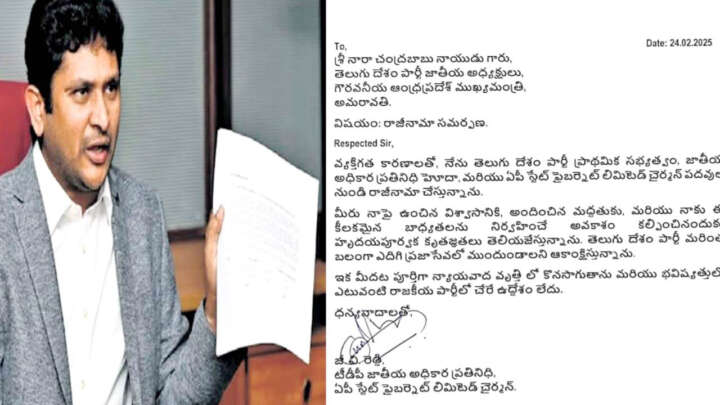 To,
Date: 24.02.2025
శ్రీ నారా చంద్రబాబు నాయుడు గారు,
తెలుగు దేశం పార్టీ జాతీయ అధ్యక్షులు,
గౌరవనీయ ఆంధ్రప్రదేశ్ ముఖ్యమంత్రి,
అమరావతి.
విషయం: రాజీనామా సమర్పణ.
Respected Sir,
వ్యక్తిగత కారణాలతో, నేను తెలుగు దేశం పార్టీ ప్రాథమిక సభ్యత్వం, జాతీయ
అధికార ప్రతినిధి హెూదా, మరియు ఏపీ స్టేట్ ఫైబర్నెట్ లిమిటెడ్ చైర్మన్ పదవుల
నుండి రాజీనామా చేస్తున్నాను.
మీరు నాపై ఉంచిన విశ్వాసానికి, అందించిన మద్దతుకు, మరియు నాకు ఈ
కీలకమైన బాధ్యతలను నిర్వహించే అవకాశం కల్పించినందుక
హృదయపూర్వక కృతజ్ఞతలు తెలియజేస్తున్నాను. తెలుగు దేశం పార్టీ మరింత
బలంగా ఎదిగి ప్రజాసేవలో ముందుండాలని ఆకాంక్షిస్తున్నాను.
ఇక మీదట పూర్తిగా న్యాయవాద వృత్తి లో కొనసాగుతాను మరియు భవిష్యత్తులో
ఎటువంటి రాజకీయ పార్టీలో చేరే ఉద్దేశం లేదు.
ధన్యవాదాలతో,
జి.వి. రెడ్డి,
టీడీపీ జాతీయ అధికార ప్రతినిధి,
ఏపీ స్టేట్ ఫైబర్నెట్ లిమిటెడ్ చైర్మన్.